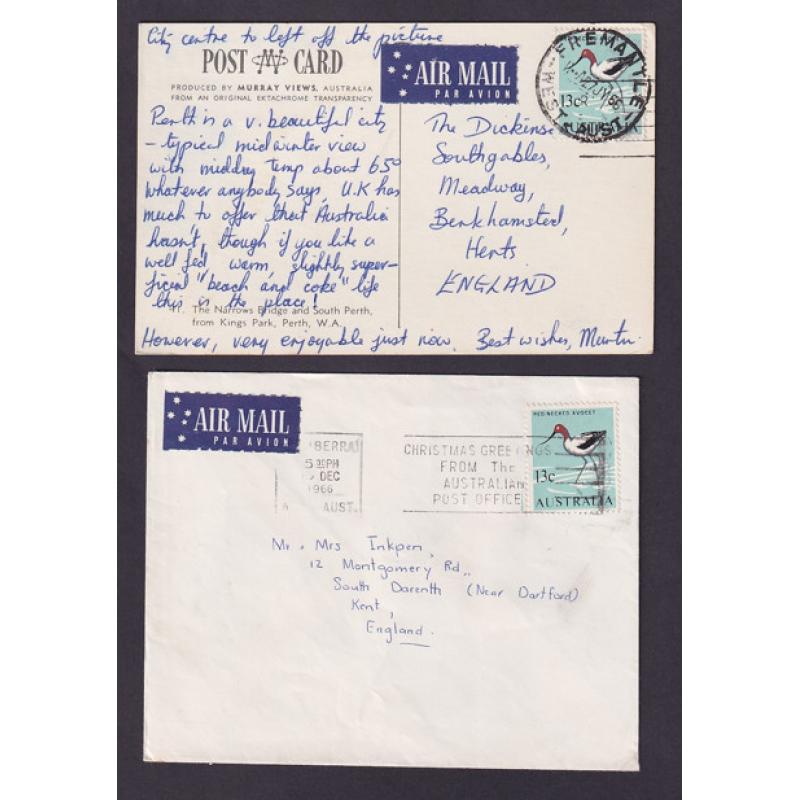 City centre to left off the picture
POST CARD
PRODUCED BY MURRAY VIEWS, AUSTRALIA
FROM AN ORIGINAL EKTACHROME TRANSPARENCY
AIR MAIL
PAR AVION
FREMANTLE
WEST. AUST.
13c
Perth is a v. beautiful city
- typical midwinter view
with midday temp about 65°
Whatever anybody says, U.K has
much to offer that Australia
hasn't, though if you like a
well fed warm, slightly super-
ficial "beach and coke" life
this is the place!
11. The Narrows Bridge and South Perth,
from Kings Park, Perth, W.A.
However, very enjoyable just now. Best wishes, Martin.
The
Southgables,
Meadway,
Berkhamsted,
Herts
ENGLAND
AIR MAIL
PAR AVION
BERRA
5 PM
DEC
1966
AUST.
CHRISTMAS GREETINGS
FROM THE
AUSTRALIAN
POST OFFICE
RED-NECKED AVOCET
13c
AUSTRALIA
Mr. Mrs Inkpen,
12 Montgomery Rd.,
South Darenth (Near Dartford)
Kent,
England.